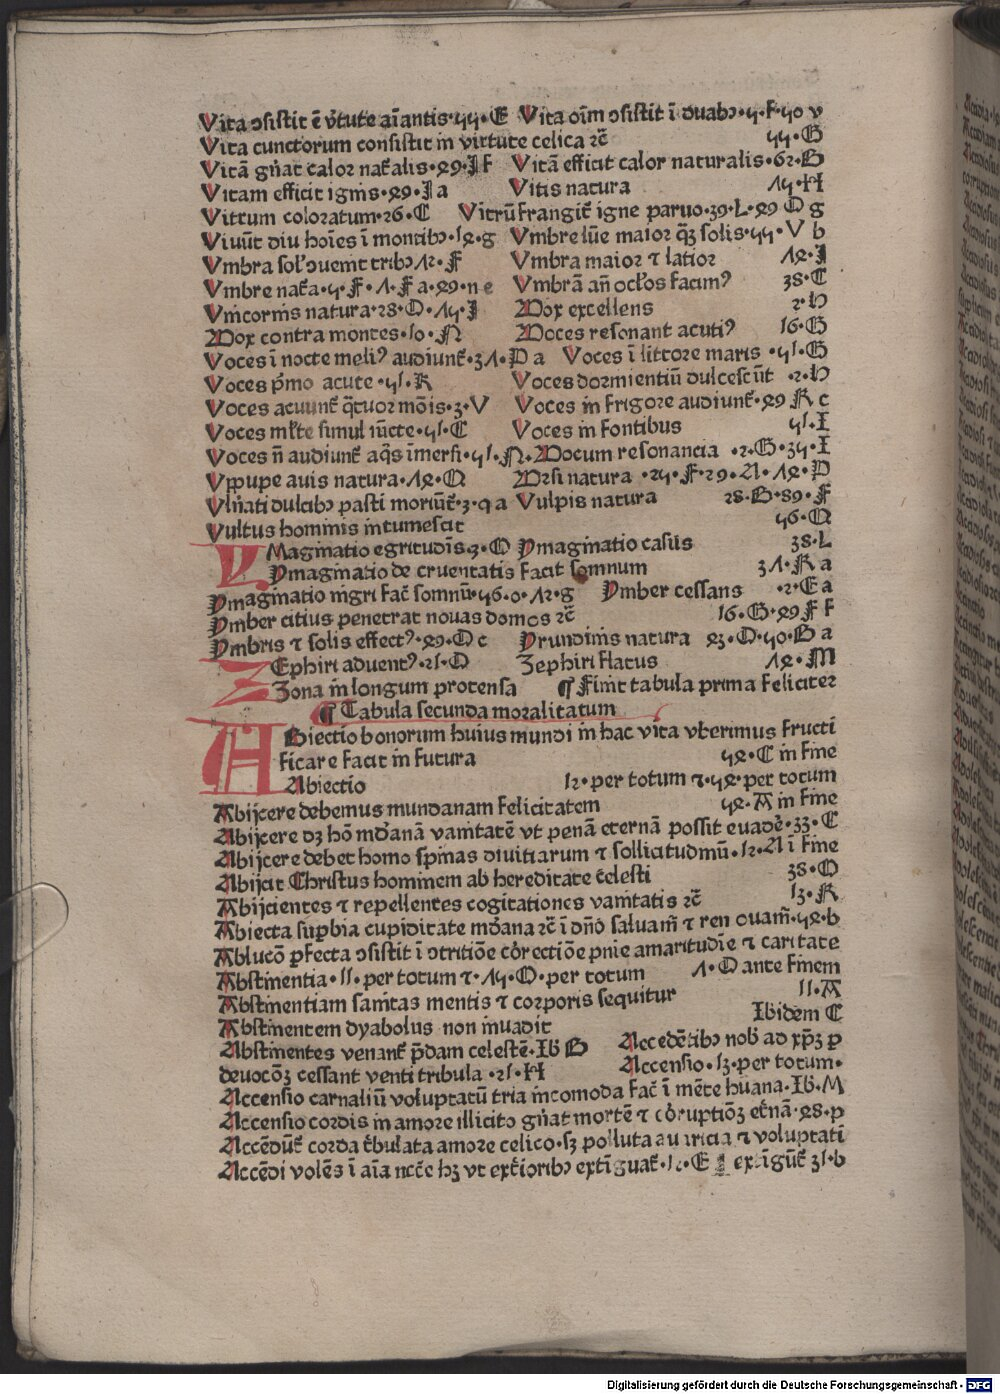 Vita ɔsistit ē v̄tute aīantis·55·E Vita oīm ɔsistit ī duabꝫ·5·F·50 v
Vita cunctorum consistit in virtute celica ⁊c̄ 55·G
Vitā gn̄at calor nat̄alis·89·I f Vitā efficit calor naturalis·62·B
Vitam efficit ignis·89·I a Vitis natura 15·H
Vitrum coloratum·26·C Vitrū frangit̄ igne paruo·39·L·89 O g
Viuūt diu hoīes ī montibꝫ·18·g Vmbre lūe maior qꝫ solis·55·V b
Vmbra sol' ɔuenit tribꝫ 12·F Vmbra maior ⁊ latior 18·I
Vmbre nat̄a·5·F·1·F a·89·n e Vmbrā an̄ ocl'os facimꝰ 38·C
Vnicornis natura·28·O·15·I Vox excellens 2·H
Vox contra montes·10·N Voces resonant acutiꝰ 16·G
Voces ī nocte meliꝰ audiunt̄·31·P a Voces ī littore maris ·51·G
Voces p̄mo acute·51·K Voces dormientiū dulcescūt ·2·H
Voces acuunt̄ q̄tuor mōis·3·V Voces in frigore audiunt̄·89 K c
Voces ml'te simul iūcte·51·C Voces in fontibus 51·I
Voces n̄ audiunt̄ aq̄s īmersi·51·N·Vocum resonancia ·2·G·35·I
Vpupe auis natura·18·Q Vrsi natura ·25·F·29·A·18·P
Vln̄ati dulcibꝫ pasti moriūt̄·3·q a Vulpis natura 28·B·89·F
Vultus hominis intumescit 56·Q
YMaginatio egritudīs·3·O Ymaginatio casus 38·L
Ymaginatio de cruentatis facit somnum 31·K a
Ymaginatio nigri fac̄ somnū·56·o·12·g Ymber cessans ·2·E a
Ymber citius penetrat nouas domos ⁊c̄ 16·G·89 F f
Ymbris ⁊ solis effectꝰ·89·O c Yrundinis natura 83·O·50·B a
ZEphiri aduentꝰ·21·O Zephiri flatus 18·M
Zona in longum protensa ¶ Finit tabula prima feliciter
¶ Tabula secunda moralitatum
ABiectio bonorum huius mundi in hac vita vberimus fructi
ficare facit in futura 58·C in fine
Abiectio 12·per totum ⁊·58·per totum
Abijcere debemus mundanam felicitatem 58·A in fine
Abijcere dꝫ hō mūdanā vanitatē vt penā eternā possit euadē·33·C
Abijcere debet homo spinas diuitiarum ⁊ sollicitudinū·12·A ī fine
Abijcit Christus hominem ab hereditate celesti 38·O
Abijcientes ⁊ repellentes cogitationes vanitatis ⁊c̄ 13·K
Abiecta supbia cupiditate mūdana ⁊c̄ ī dn̄o saluam̄ ⁊ ren ouam̄·58·b
Ablucō pfecta ɔsistit ī ɔtritiōe cōrectiōe pnie amaritudīe ⁊ caritate
Abstinentia·11·per totum ⁊·15·O·per totum 1·O ante finem
Abstinentiam sanitas mentis ⁊ corporis sequitur 11·A
Abstinentem dyabolus non inuadit Ibidem C
Abstinentes venant̄ p̄dam celestē·Ib B Accedētibꝫ nob̄ ad xp̄ꝫ p
deuocōꝫ cessant venti tribula ·21·H Accensio·13·per totum·
Accensio carnaliū voluptatū tria incomoda fac̄ ī mēte huana·Ib·M
Accensio cordis in amore illicito gn̄at mortē ⁊ cōruptiōꝫ et̄nā·88·p
Accēdūt̄ corda t̄bulata amore celico·sꝫ polluta auaricia ⁊ voluptati
Accēdi volēs ī aīa ncc̄e hꝫ vt ext̄ioribꝫ extīguat̄·12·E extīgūt̄ 31·b